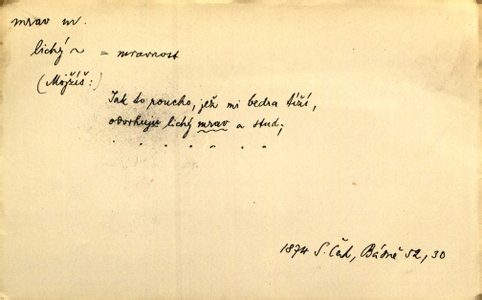 mrav m.
lichý ~ = mravnost
(Mojžíš:)
Jak to roucho, jež mi bedra tíží,
odvrhuju lichý mrav a stud;
. . . . . .
1874 S. Čech, Básně 52, 30